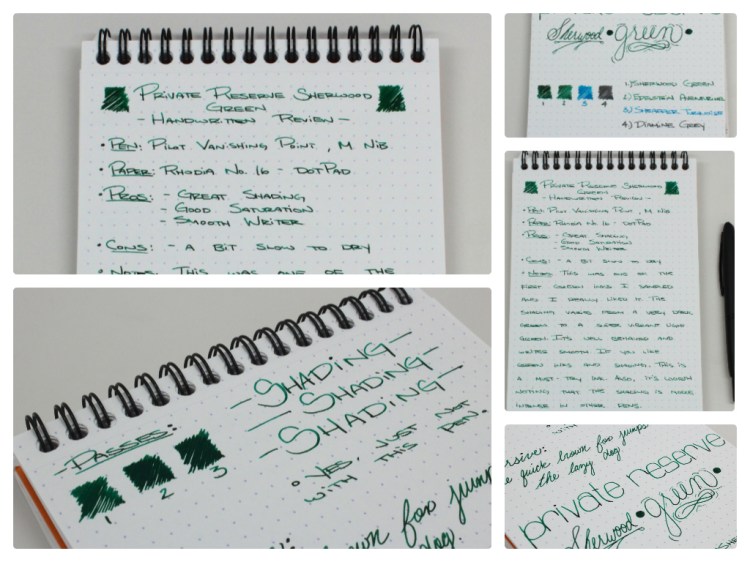 Private Reserve Sherwood
Green
- Handwritten Review -
• Pen: Pilot Vanishing Point, M Nib
• Paper: Rhodia No. 16 - DotPad
• Pros: - Great Shading,
- Good Saturation
- Smooth Writer
• Cons: - A bit slow to dry
• Notes: This was one of the
private reserve
Sherwood • green •
1 2 3 4
1) Sherwood Green
3) Sheaffer Turquoise
4) Diamine Grey
Private Reserve Sherwood
Green
- Handwritten Review -
• Pen: Pilot Vanishing Point, M Nib
• Paper: Rhodia No. 16 - DotPad
• Pros: - Great Shading
- Good Saturation
- Smooth Writer
• Cons: - A bit slow to dry
• Notes: This was one of the
first green inks I sampled
and I really liked it. The
shading varies from a very dark
green to a
green. It's well behaved and
writes smooth. If you like
green inks and shading, this is
a must-try ink. Also, it's worth
noting that the shading is more
intense in other pens.
- Passes:
1 2 3
- Shading -
- Shading -
- Shading -
• Yes, just not
with this pen.
brown fox jump
dog.
rsive:
e quick brown fox jumps
the lazy dog
private reserve
Sherwood • green •